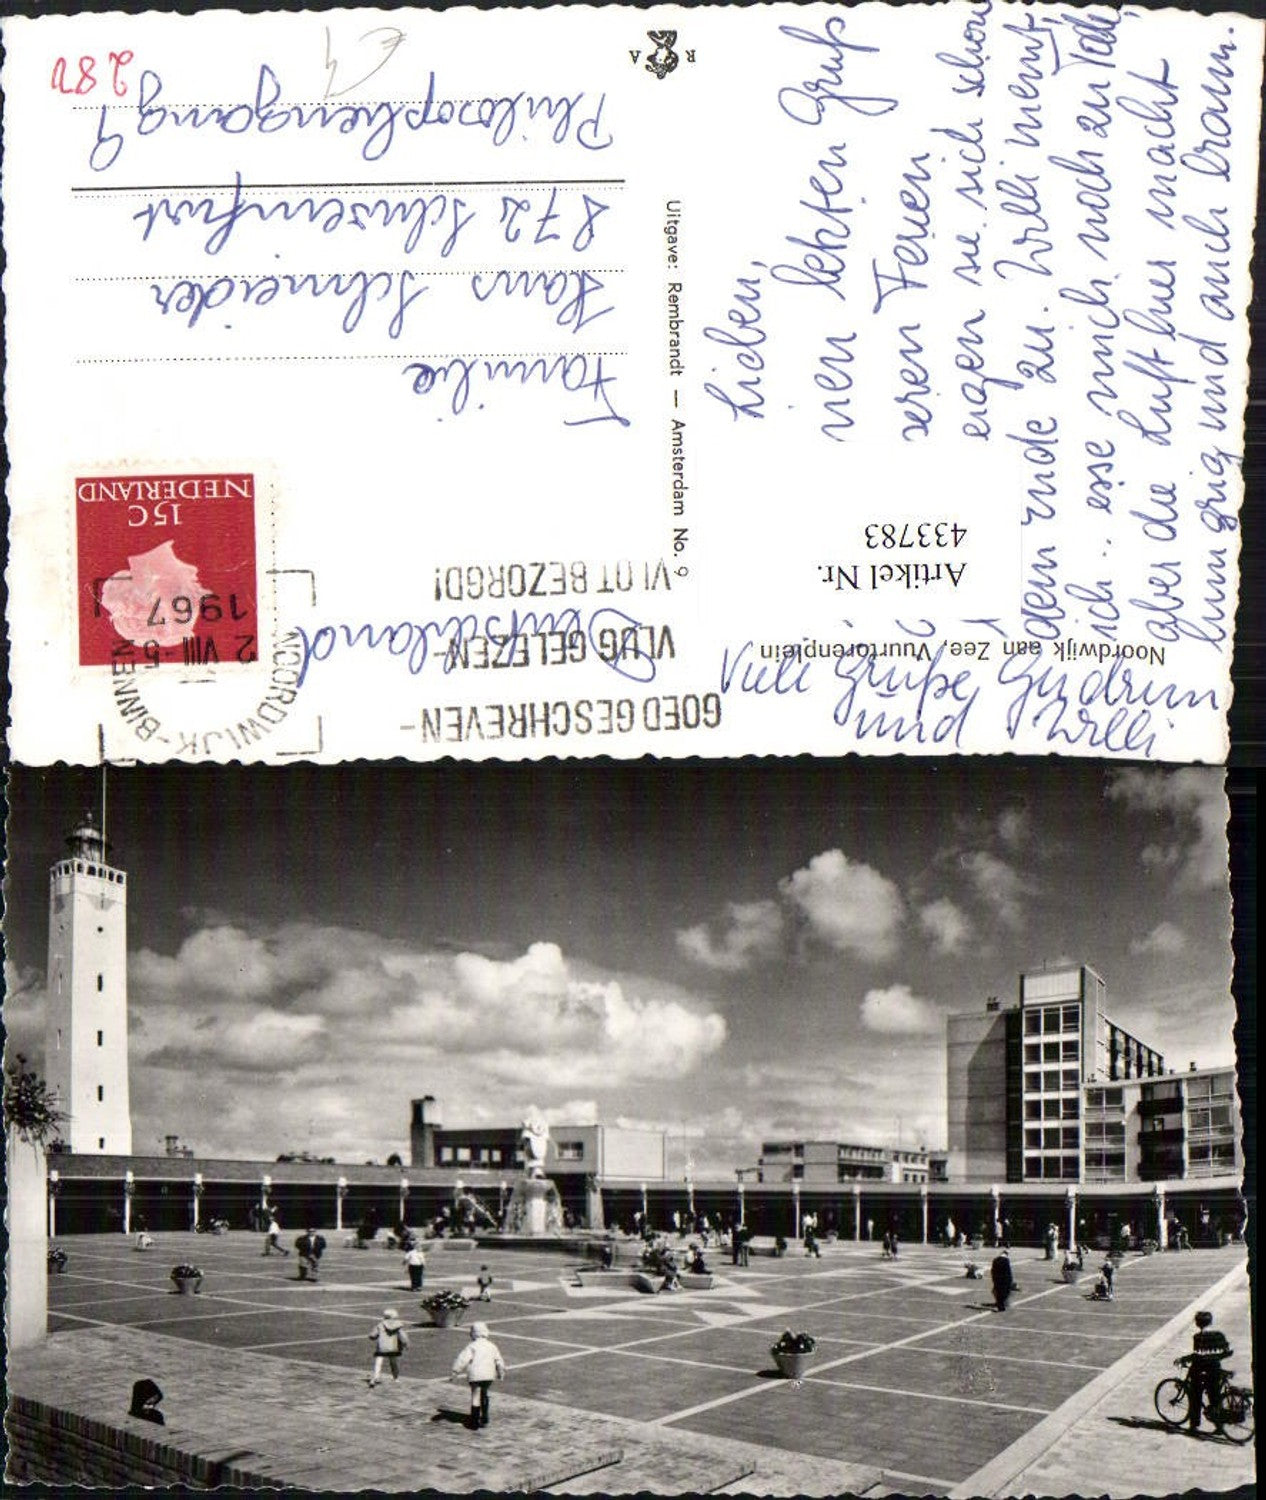 Noordwijk aan Zee, Vuurtorenplein
Lieben,
nen letzten Gruß
seren Ferien
eigen sie sich schon
dem Ende zu. Willi nennt,
ich .. esse mich noch zu Tode,
aber die Luft hier macht
hungrig und auch braun.
Viele Grüße, Gudrun
und Willi
Artikel Nr.
433783
Uitgave: Rembrandt — Amsterdam No. 9
R A
GOED GESCHREVEN-
VLUG GELEZEN-
VLOT BEZORGD!
NOORDWIJK-BINNEN
2 VIII -5
1967
NEDERLAND
15C
Familie
Hans Schneider
872 Schweinfurt
Philosophengang 9
Deutschland
280